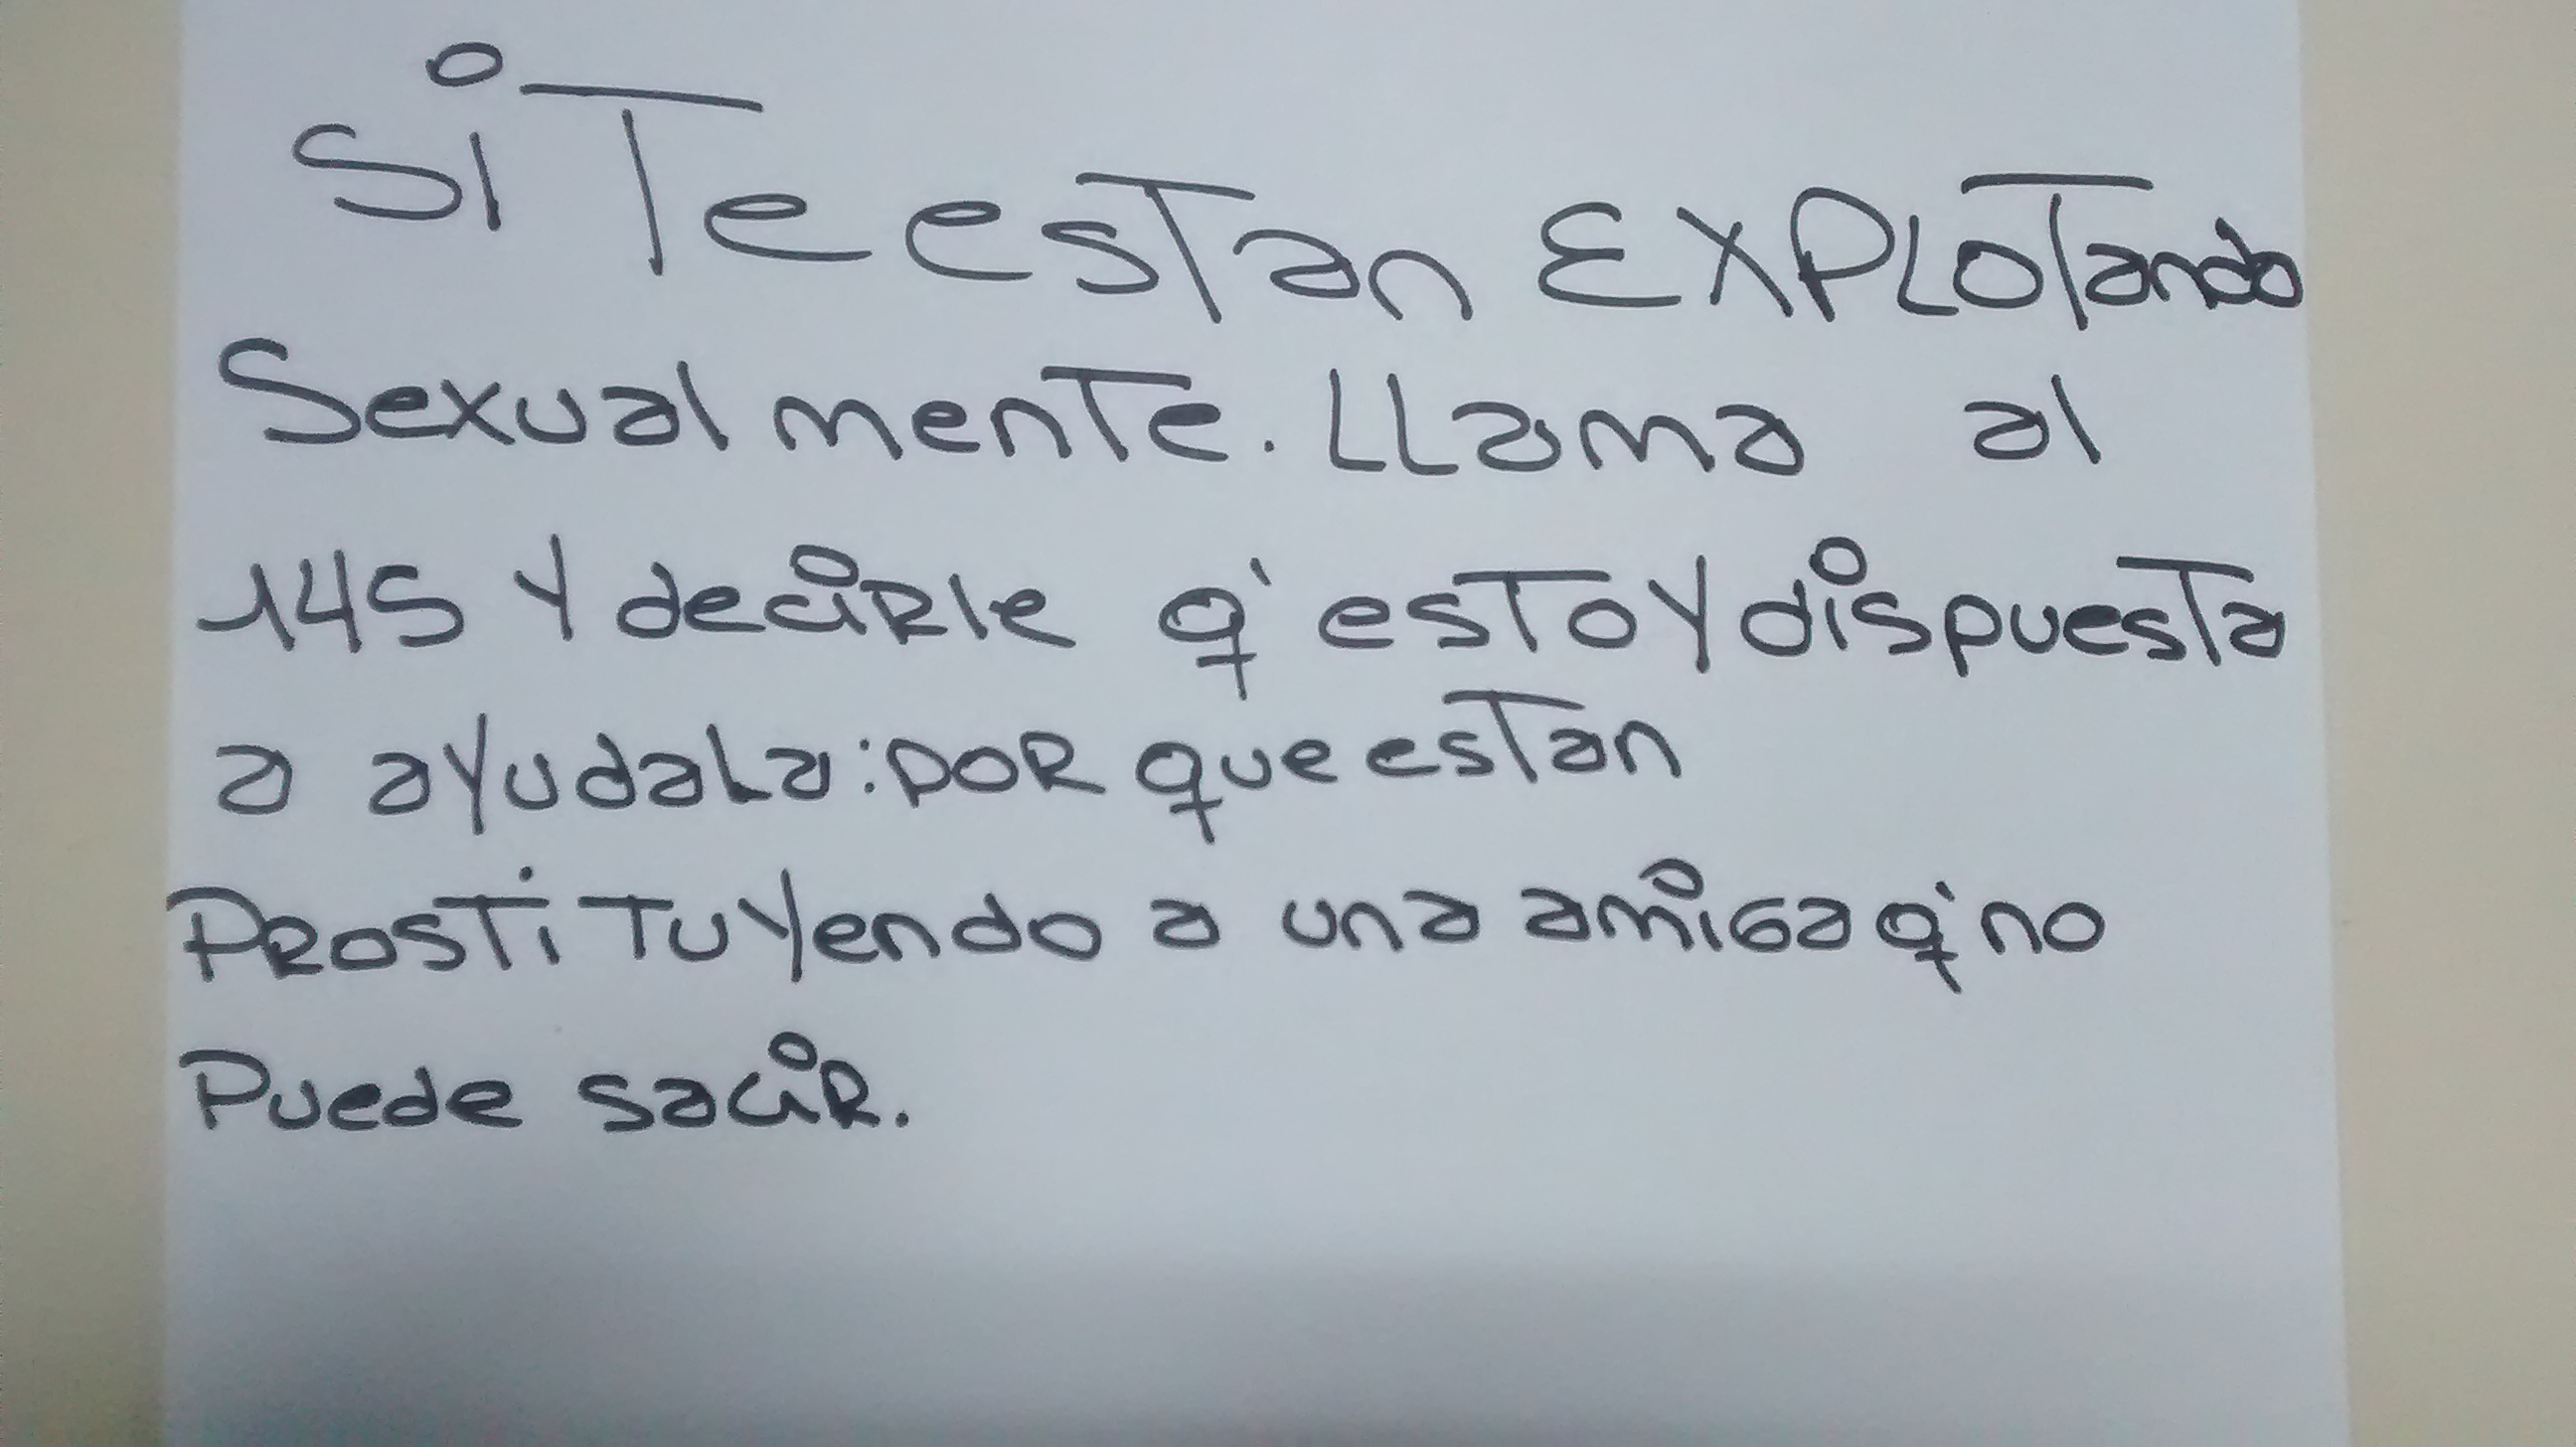 Si Te estan EXPLOTando
Sexualmente. LLama al
145 Y decirle q' estoy dispuesta
a ayudaLa: poR que estan
PROSTiTuyendo a una amiga q' no
Puede saliR.